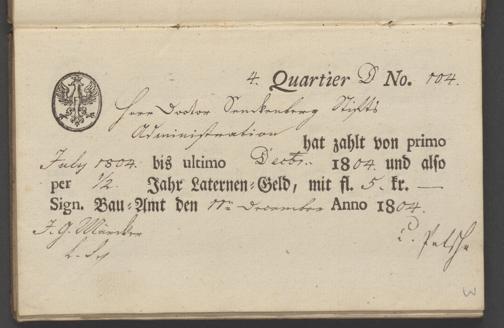 4. Quartier D No. 104.
Herr Doctor Senckenberg Stifts
Administration hat zahlt von primo
July 1804. bis ultimo Decbr. 1804. und also
per 1/2. Jahr Laternen-Geld, mit fl. 5. kr. —
Sign. Bau-Amt den December Anno 1804.
J. G. Märcker